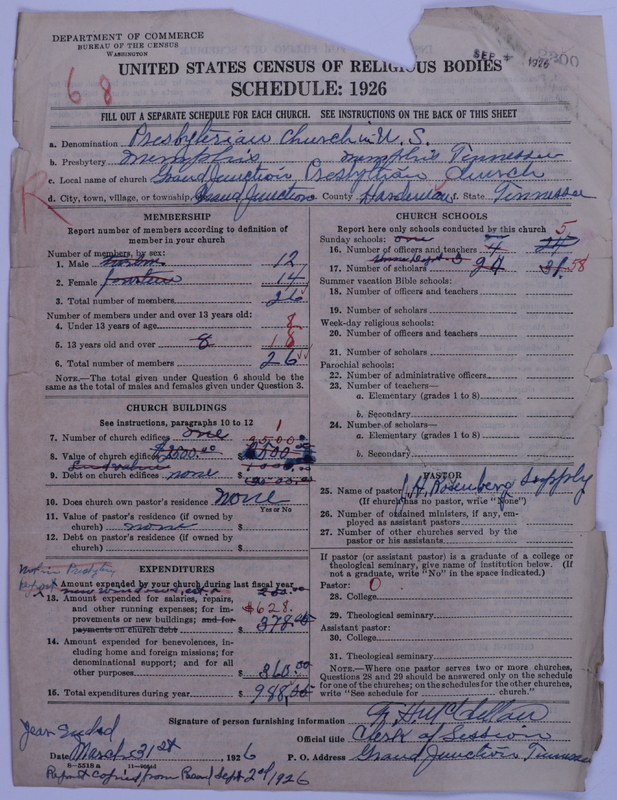 DEPARTMENT OF COMMERCE
BUREAU OF THE CENSUS
WASHINGTON
SEP 1926
2200
UNITED STATES CENSUS OF RELIGIOUS BODIES
SCHEDULE: 1926
6 8
FILL OUT A SEPARATE SCHEDULE FOR EACH CHURCH. SEE INSTRUCTIONS ON THE BACK OF THIS SHEET
a. Denomination Presbyterian Church in U. S.
b. Presbytery Memphis Memphis Tennessee
c. Local name of church Grand Junction Presbyterian Church
d. City, town, village, or township Grand Junction e. County Hardeman f. State Tennessee
R
MEMBERSHIP
Report number of members according to definition of
member in your church
Number of members, by sex:
1. Male 12
2. Female 14
3. Total number of members 26
Number of members under and over 13 years old:
4. Under 13 years of age 8
5. 13 years old and over 8 18
6. Total number of members 26
NOTE.—The total given under Question 6 should be the
same as the total of males and females given under Question 3.
CHURCH BUILDINGS
See instructions, paragraphs 10 to 12
7. Number of church edifices one 1
8. Value of church edifices $2500.00
9. Debt on church edifices none
10. Does church own pastor's residence? none
Yes or No
11. Value of pastor's residence (if owned by
church) none $
12. Debt on pastor's residence (if owned by
church) $
EXPENDITURES
Not in Presbytery
report
Amount expended by your church during last fiscal year
new windows, est. 250.00
13. Amount expended for salaries, repairs,
and other running expenses; for im-
provements or new buildings; and for
payments on church debt $628. $ 378.00
14. Amount expended for benevolences, in-
cluding home and foreign missions; for
denominational support; and for all
other purposes $ 360.00
15. Total expenditures during year $ 988.00
CHURCH SCHOOLS
Report here only schools conducted by this church
Sunday schools: one 5
16. Number of officers and teachers 4
17. Number of scholars 24 58
Summer vacation Bible schools:
18. Number of officers and teachers
19. Number of scholars
Week-day religious schools:
20. Number of officers and teachers
21. Number of scholars
Parochial schools:
22. Number of administrative officers
23. Number of teachers—
a. Elementary (grades 1 to 8)
b. Secondary
24. Number of scholars—
a. Elementary (grades 1 to 8)
b. Secondary
PASTOR
25. Name of pastor J. H. Rosenberg Supply
(If church has no pastor, write "None")
26. Number of ordained ministers, if any, em-
ployed as assistant pastors
27. Number of other churches served by the
pastor or his assistants
If pastor (or assistant pastor) is a graduate of a college or
theological seminary, give name of institution below. (If
not a graduate, write "No" in the space indicated.)
Pastor: O
28. College
29. Theological seminary
Assistant pastor:
30. College
31. Theological seminary
NOTE.—Where one pastor serves two or more churches,
Questions 28 and 29 should be answered only on the schedule
for one of the churches; on the schedules for the other churches,
write "See schedule for church."
Signature of person furnishing information
Official title Clerk of Session
Date March 31st, 1926 P. O. Address Grand Junction Tennessee
Year Ended
8-5518 a
Report copied from Record Sept 2nd 1926